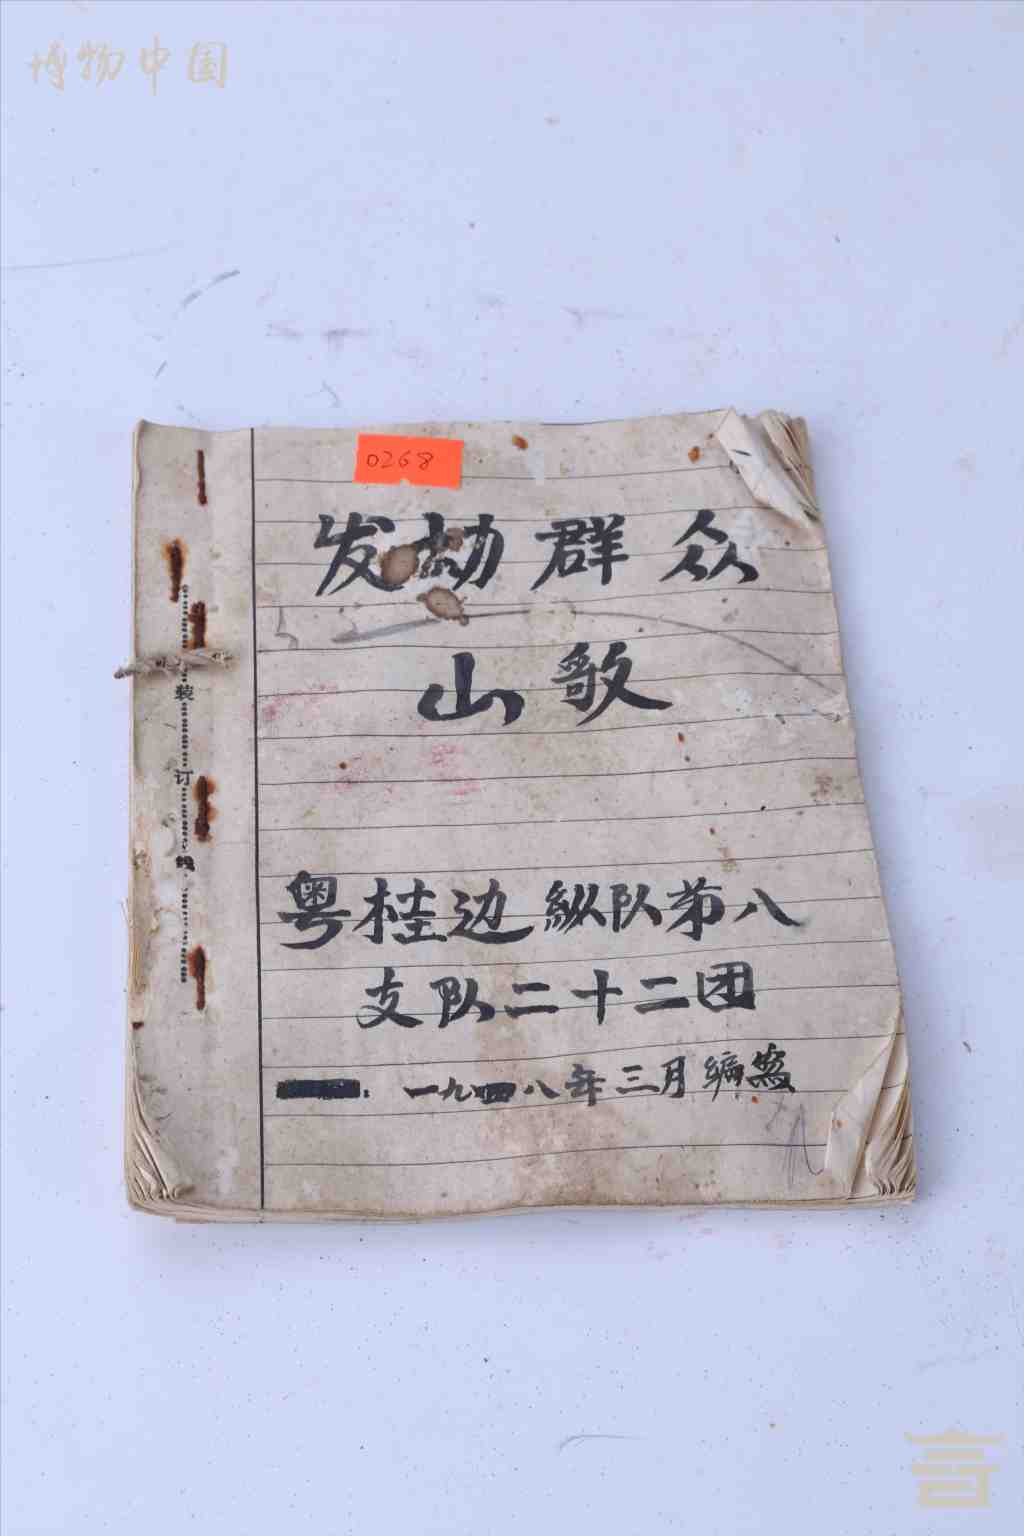 博物中国
0268
发动群众
山歌
装订线
粤桂边纵队第八
支队二十二团
一九四八年三月编写